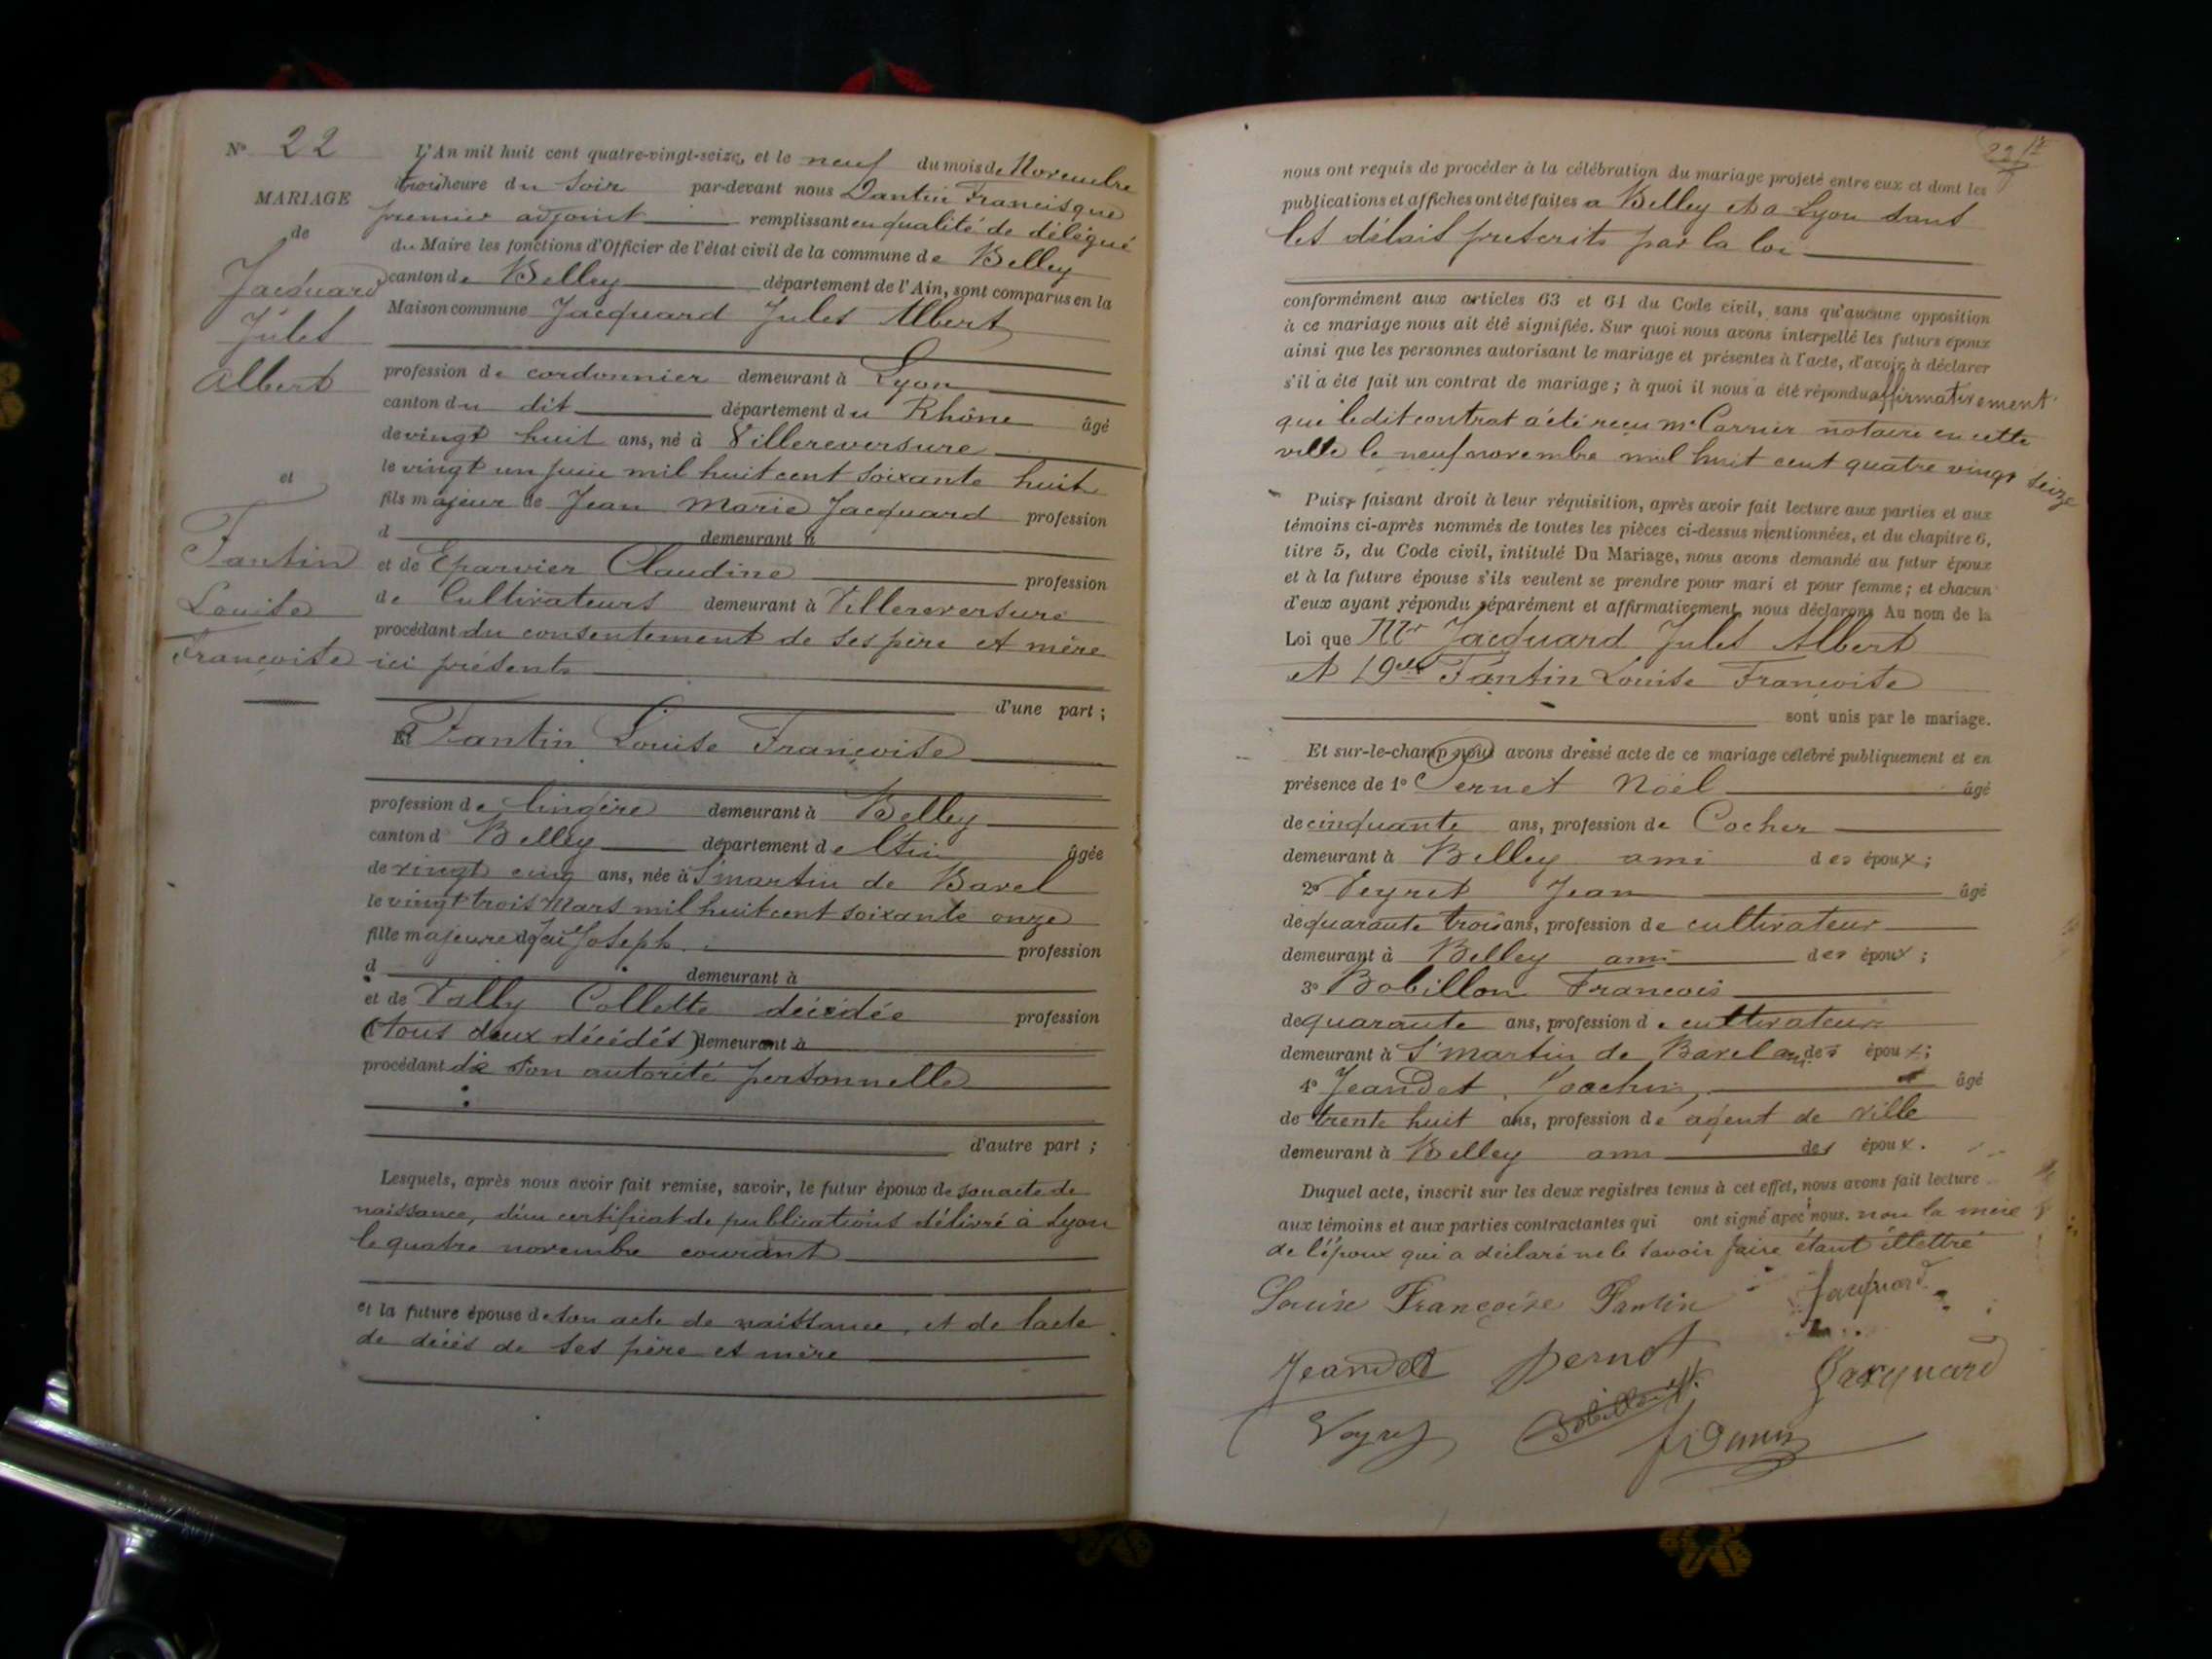 N° 22
MARIAGE
de
Jacquard
Jules
Albert
et
Fantin
Louise
Françoise
L'An mil huit cent quatre-vingt-seize, et le neuf du mois de Novembre
trois heure du soir par-devant nous Dantin Francisque
premier adjoint remplissant en qualité de délégué
du Maire les fonctions d'Officier de l'état civil de la commune de Belley
canton de Belley département de l'Ain, sont comparus en la
Maison commune Jacquard Jules Albert
profession de cordonnier demeurant à Lyon
canton du dit département du Rhône âgé
de vingt huit ans, né à Villereversure
le vingt un juin mil huit cent soixante huit
fils majeur de Jean Marie Jacquard profession
d demeurant à
et de Eparvier Claudine profession
de Cultivateurs demeurant à Villereversure
procédant du consentement de ses père et mère
ici présents
d'une part ;
Et Fantin Louise Françoise
profession de lingère demeurant à Belley
canton d Belley département de l'Ain âgée
de vingt cinq ans, née à St martin de Bavel
le vingt trois Mars mil huit cent soixante onze
fille majeure de feu Joseph profession
d demeurant à
et de Vally Collette décédée profession
(tous deux décédés) demeurant à
procédant de son autorité personnelle
d'autre part ;
Lesquels, après nous avoir fait remise, savoir, le futur époux de son acte de
naissance, d'un certificat de publications délivré à Lyon
le quatre novembre courant
et la future épouse de son acte de naissance, et de l'acte
de décès de ses père et mère
nous ont requis de procéder à la célébration du mariage projeté entre eux et dont les
publications et affiches ont été faites a Belley et a Lyon dans
les délais prescrits par la loi
conformément aux articles 63 et 64 du Code civil, sans qu'aucune opposition
à ce mariage nous ait été signifiée. Sur quoi nous avons interpellé les futurs époux
ainsi que les personnes autorisant le mariage et présentes à l'acte, d'avoir à déclarer
s'il a été fait un contrat de mariage ; à quoi il nous a été répondu affirmativement
que ledit contrat a été reçu Me Carrier notaire en cette
ville le neuf novembre mil huit cent quatre vingt seize
Puis, faisant droit à leur réquisition, après avoir fait lecture aux parties et aux
témoins ci-après nommés de toutes les pièces ci-dessus mentionnées, et du chapitre 6,
titre 5, du Code civil, intitulé Du Mariage, nous avons demandé au futur époux
et à la future épouse s'ils veulent se prendre pour mari et pour femme ; et chacun
d'eux ayant répondu séparément et affirmativement, nous déclarons Au nom de la
Loi que Mr Jacquard Jules Albert
et Delle Fantin Louise Françoise
sont unis par le mariage.
Et sur-le-champ nous avons dressé acte de ce mariage célébré publiquement et en
présence de 1° Pernet Noël âgé
de cinquante ans, profession de Cocher
demeurant à Belley ami des époux ;
2° Veyret Jean âgé
de quarante trois ans, profession de cultivateur
demeurant à Belley ami des époux ;
3° Bobillon François
de quarante ans, profession de cultivateur
demeurant à St martin de Bavel ami des époux ;
4° Jeandet Joachim, âgé
de trente huit ans, profession de agent de ville
demeurant à Belley ami des époux.
Duquel acte, inscrit sur les deux registres tenus à cet effet, nous avons fait lecture
aux témoins et aux parties contractantes qui ont signé avec nous. non la mère
de l'époux qui a déclaré ne le savoir faire étant illettré
Louise Françoise Fantin Jacquard
Jeandet Pernet Jacquard
Veyret Bobillon